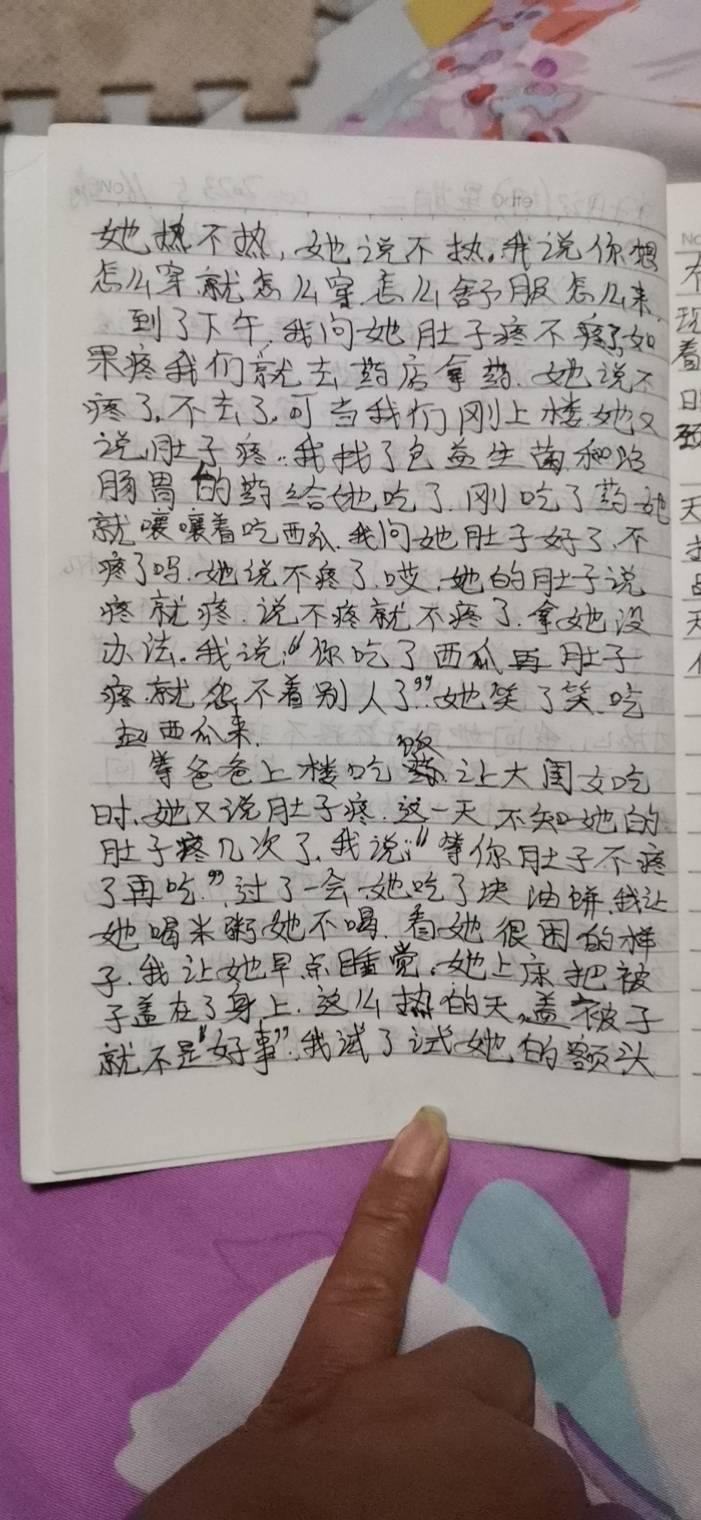 她热不热,她说不热。我说你想
怎么穿就怎么穿.怎么舒服怎么来.
到了下午,我问她肚子疼不疼了,如
果疼我们就去药店拿药.她说不
疼了.不去了.可当我们刚上楼她又
说肚子疼..我找了包益生菌和治
肠胃的药给她吃了.刚吃了药她
就嚷嚷着吃西瓜.我问她肚子好了.不
疼了吗.她说不疼了.哎.她的肚子说
疼就疼.说不疼就不疼了.拿她没
办法。我说:“你吃了西瓜再肚子
疼.就怨不着别人了”.她笑了笑.吃
起西瓜来.
等爸爸上楼吃饭.让大闺女吃
时.她又说肚子疼.这一天不知她的
肚子疼几次了.我说:“等你肚子不疼
了再吃.”.过了一会她吃了块油饼.我让
她喝米粥她不喝.看她很困的样
子.我让她早点睡觉.她上床把被
子盖在了身上.这么热的天,盖被子
就不是“好事”.我试了试她的额头
No
现
着
日
天
天